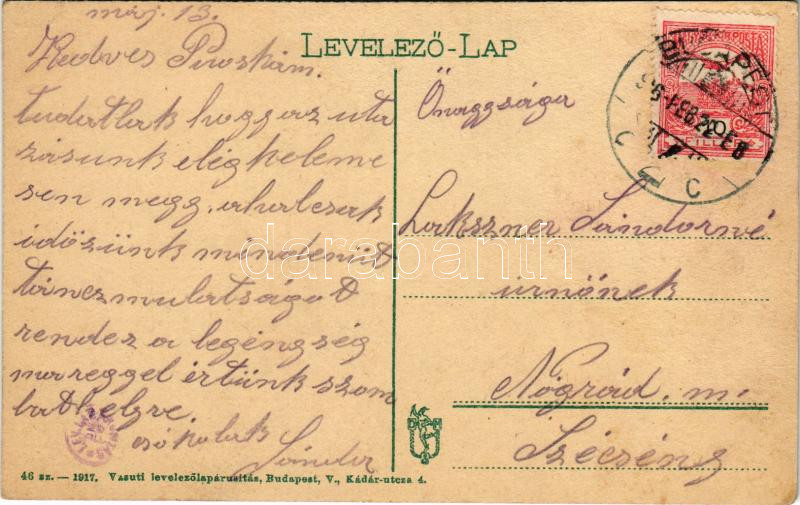 máj. 13.
Kedves Piroskám.
tudatlak hogy az uta
zásunk elég keleme
sen megy, ahol csak
időzünk mindenüt
táncz mulatságot
rendez a legénység
ma reggel értünk szom
bathelyre.
csókolak
Sándor
LEVELEZŐ-LAP
Őnaggsága
Lakszner Sándorné
úrnőnek
Nógrád. m.
Szécsény
BUDAPEST
FEB 22
10
FILLÉR
darabanth
46 sz. — 1917. Vasuti levelezőlapárusitás, Budapest, V., Kádár-utcza 4.